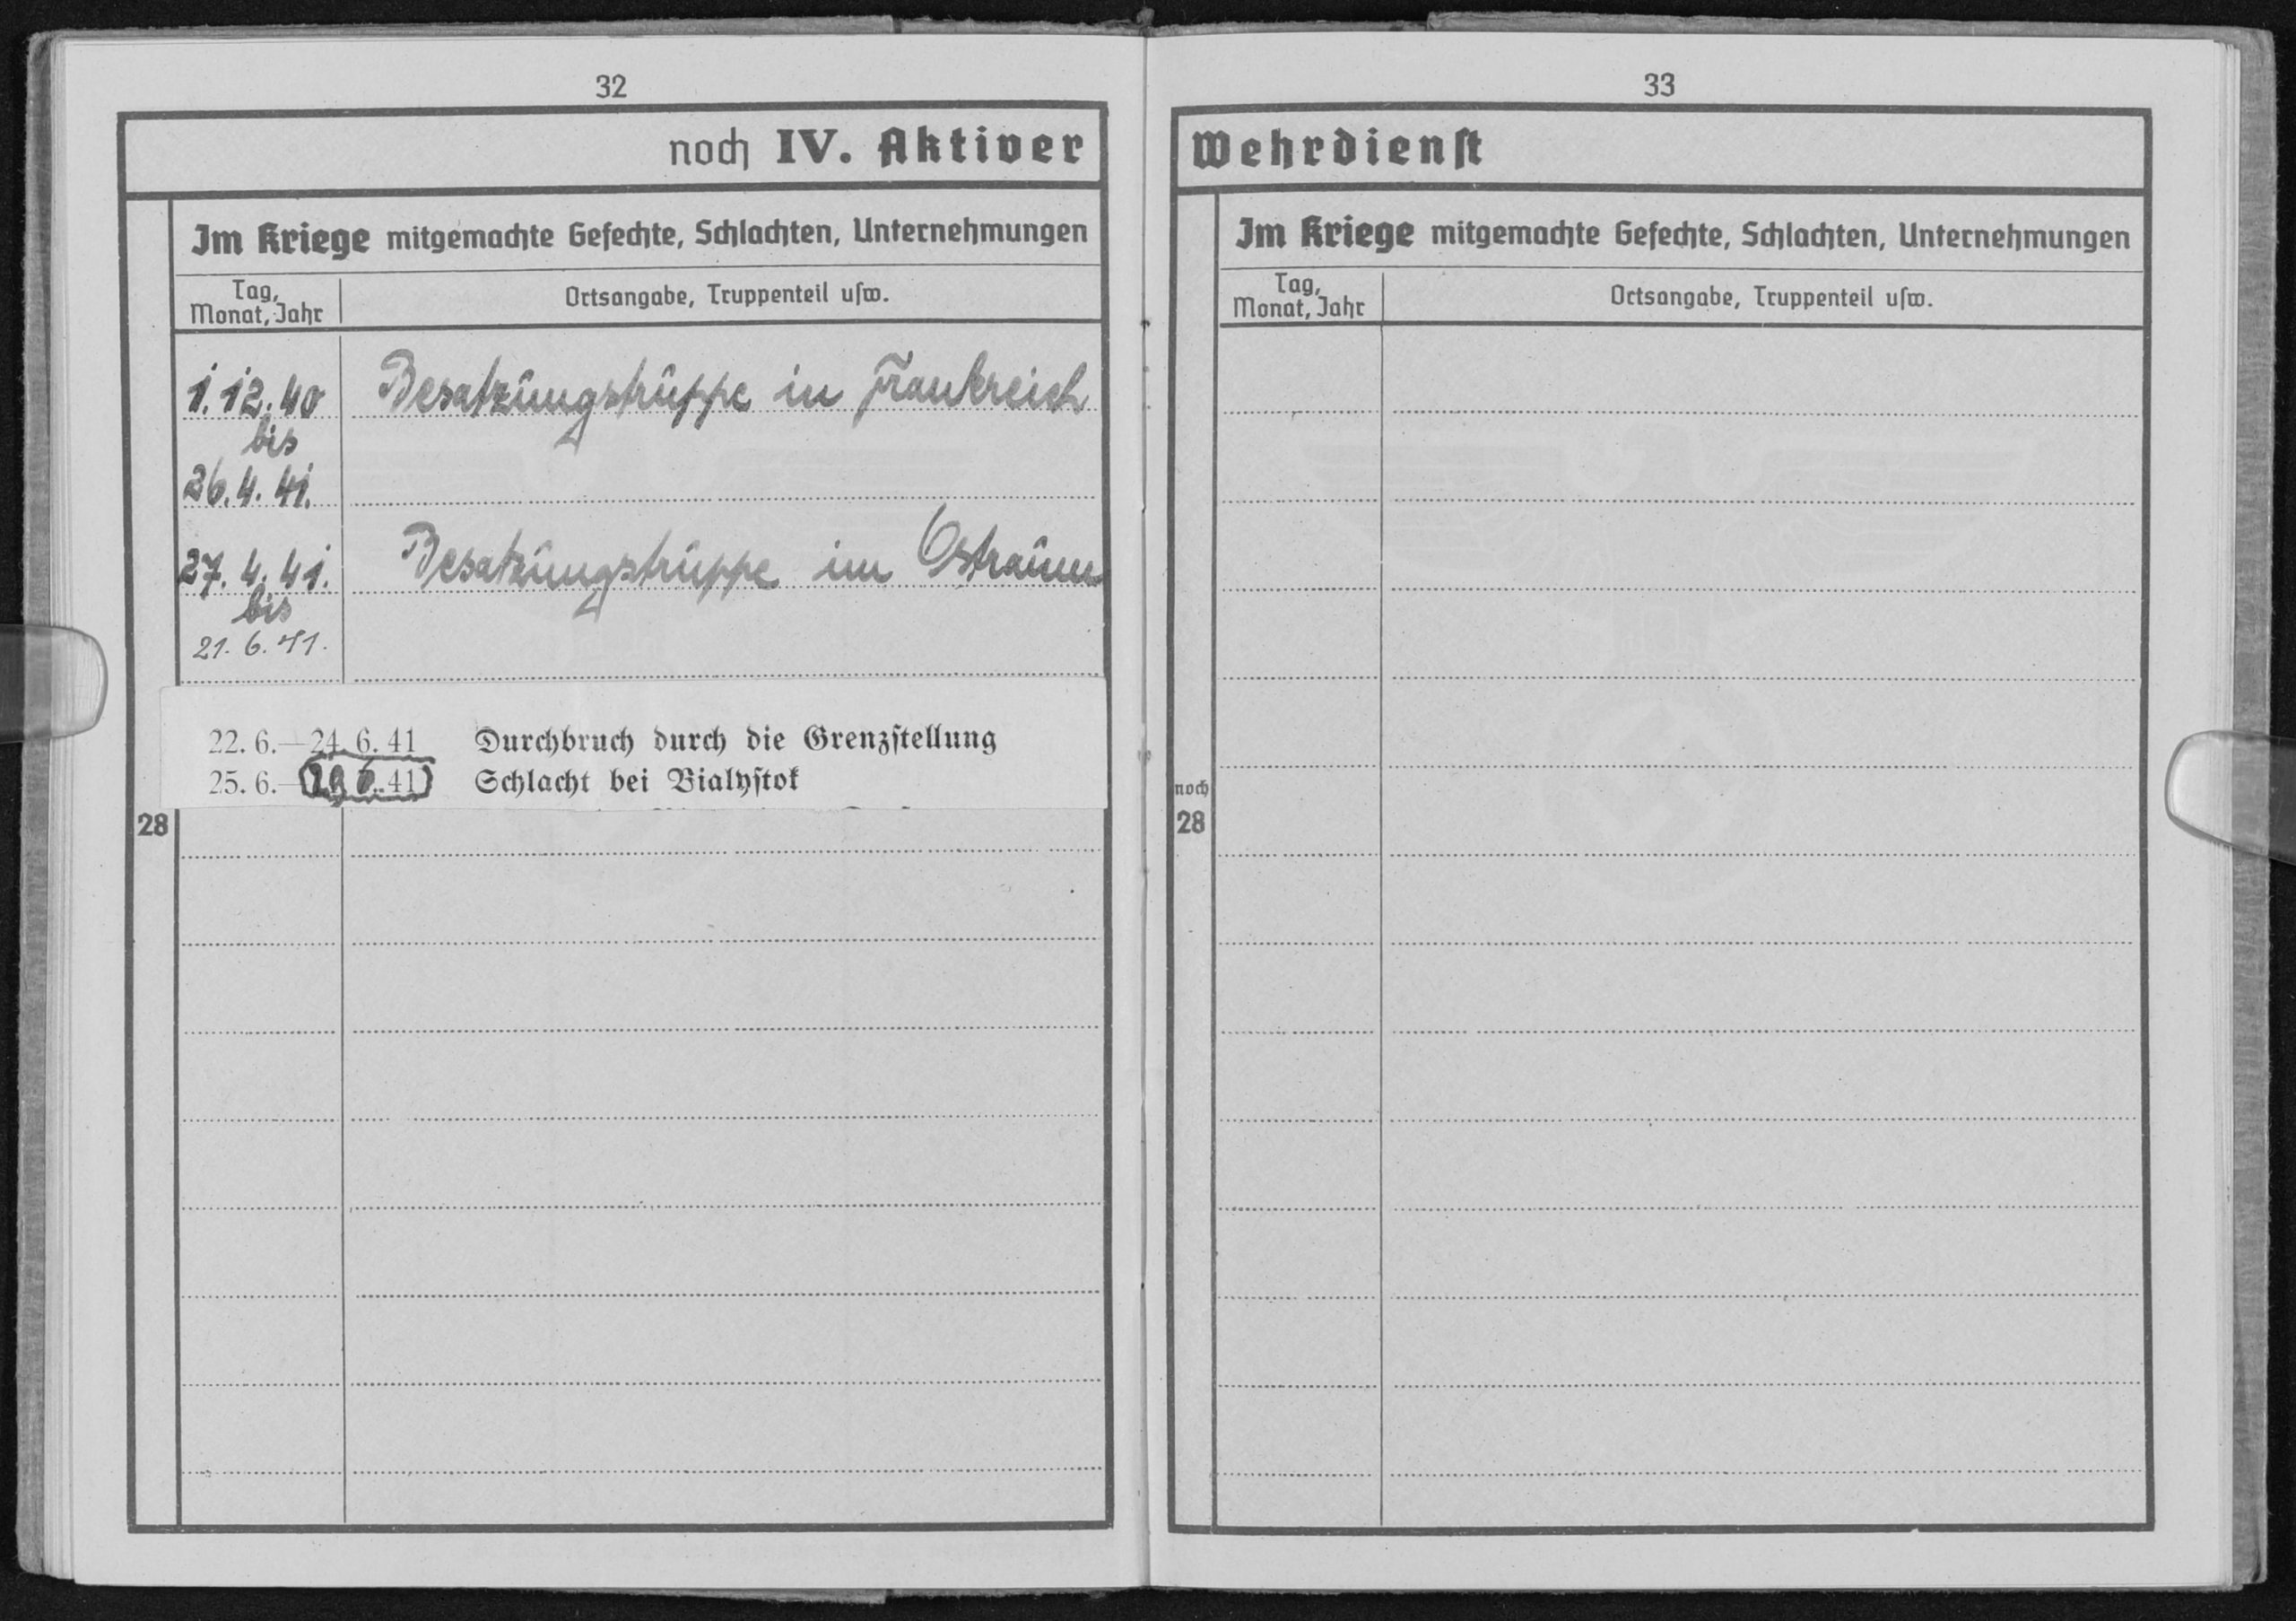 32
noch IV. Aktiver
Im Kriege mitgemachte Gefechte, Schlachten, Unternehmungen
Tag, Monat, Jahr
Ortsangabe, Truppenteil usw.
1.12.40 Besatzungstruppe in Frankreich
bis
26.4.41.
27.4.41. Besatzungstruppe im Ostraum
bis
21.6.41.
22. 6.—24. 6. 41 Durchbruch durch die Grenzstellung
25. 6.— 41 Schlacht bei Bialystok
28
33
Wehrdienst
Im Kriege mitgemachte Gefechte, Schlachten, Unternehmungen
Tag, Monat, Jahr
Ortsangabe, Truppenteil usw.
noch
28